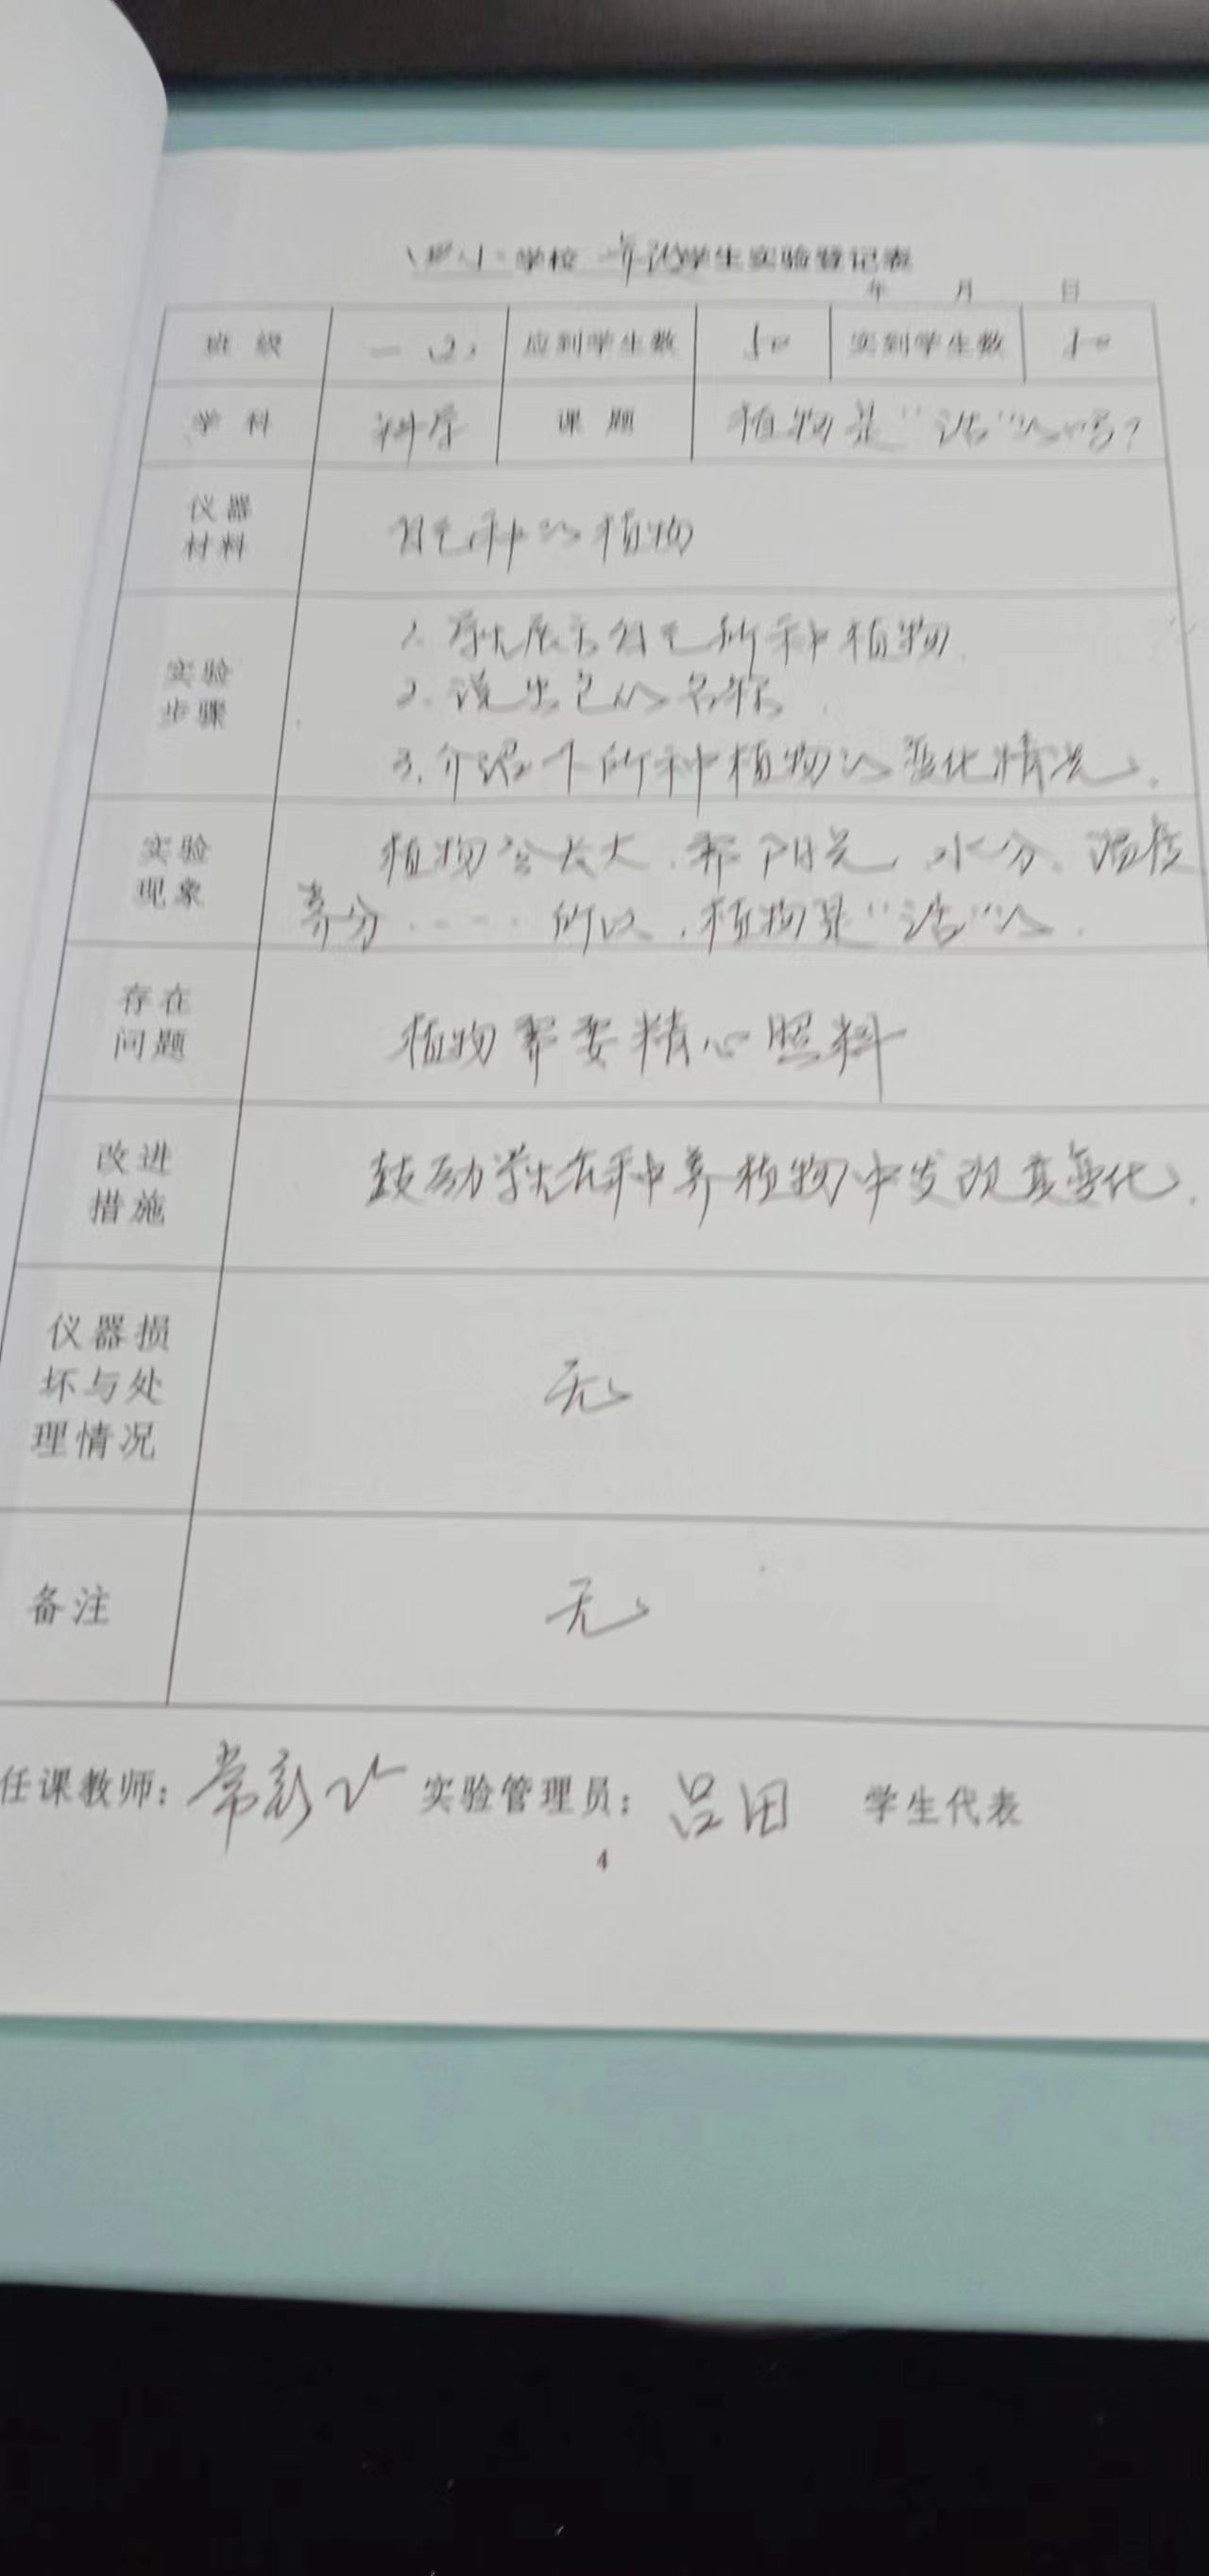 学校 学生实验登记表
年 月 日
班级 一(2) 应到学生数 50 实到学生数 50
学科 科学 课题 植物是“活”的吗?
仪器
材料
自己种的植物
实验
步骤
1. 学生展示自己所种植物.
2. 说出它的名称.
3. 介绍下所种植物的变化情况.
实验
现象
植物会长大.需阳光、水分、温度
养分……所以,植物是“活”的.
存在
问题
植物需要精心照料
改进
措施
鼓励学生在种养植物中发现其变化.
仪器损
坏与处
理情况
无
备注
无
任课教师: 常 实验管理员: 吕田 学生代表
4